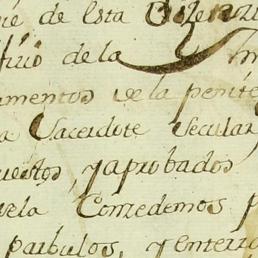 ue de Esta
ficio de la
amentos de la penite
a Sacerdote Secular
uestos, y aprobados
uela Consedemos p
parbulos, y enterra